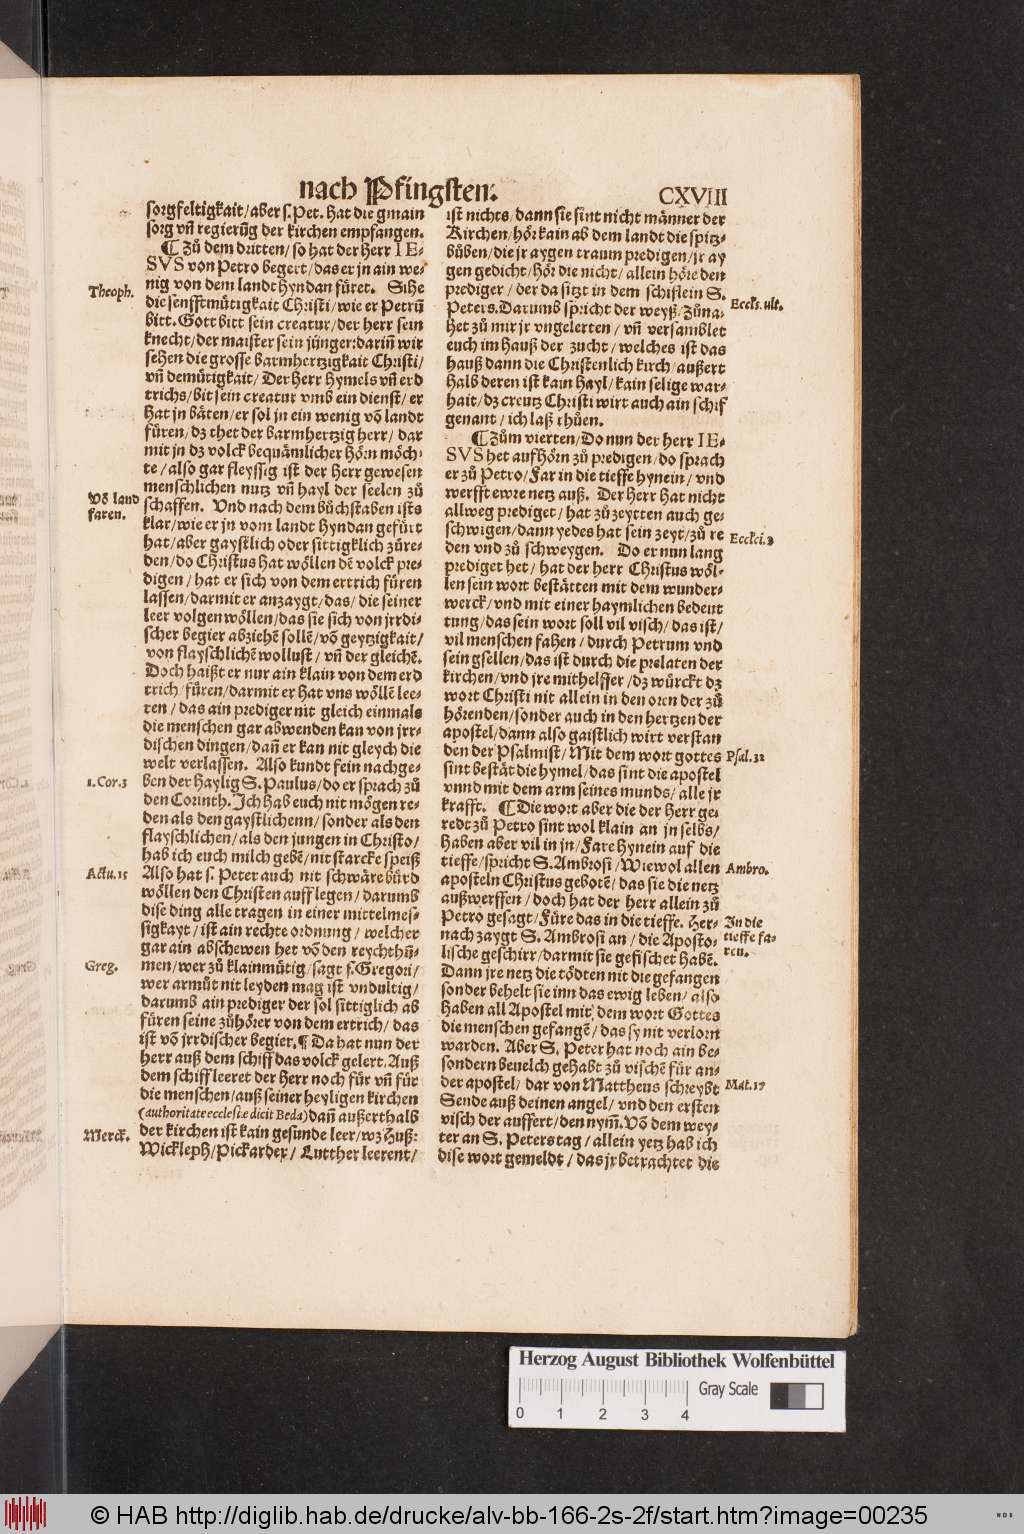 nach Pfingsten.
CXVIII
sorgfeltigkait/aber s. Pet. hat die gmain
sorg vñ regierũg der kirchen empfangen.
¶ Zů dem dritten/so hat der herr IE-
SVS von Petro begert/das er jn ain we-
nig von dem landt hyndan fůret. Sihe
die senfftmůtigkait Christi/wie er Petrũ
bitt. Gott bitt sein creatur/der herr sein
knecht/der maister sein jünger: dariñ wir
sehen die grosse barmhertzigkait Christi/
vñ demůtigkait/Der herr hymels vñ erd
trichs/bit sein creatur vmb ein dienst/er
hat jn bäten/er sol jn ein wenig võ landt
fůren/dz thet der barmhertzig herr/dar
mit jn dz volck bequämlicher hörn möch-
te/also gar fleyssig ist der herr gewesen
menschlichen nutz vñ hayl der seelen zů
schaffen. Vnd nach dem bůchstaben ists
klar/wie er jn vom landt hyndan gefůrt
hat/aber gaystlich oder sittigklich zůre-
den/do Christus hat wöllen dẽ volck pre-
digen/hat er sich von dem ertrich fůren
lassen/darmit er anzaygt/das/die seiner
leer volgen wöllen/das sie sich von jrrdi-
scher begier abziehẽ sollẽ/võ geytzigkait/
von flayschlichẽ wollust/vñ der gleichẽ.
Doch haißt er nur ain klain von dem erd
trich/fůren/darmit er hat vns wöllẽ lee-
ren/das ain prediger nit gleich einmals
die menschen gar abwenden kan von jrr-
dischen dingen/dañ er kan nit gleych die
welt verlassen. Also kundt sein nachge-
ben der haylig S. Paulus/do er sprach zů
den Corinth. Ich hab euch nit mögen re-
den als den gaystlichenn/sonder als den
flayschlichen/als den jungen in Christo/
hab ich euch milch gebẽ/nit starcke speiß
Also hat s. Peter auch nit schwäre bůrd
wöllen den Christen auff legen/darumb
dise ding alle tragen in einer mittelmes-
sigkayt/ist ain rechte ordnung/welcher
gar ain abschewen het võ den reychthũ-
men/wer zů klainmůtig/sagt s. Gregori/
wer armůt nit leyden mag ist vndultig/
darumb ain prediger der sol sittiglich ab
fůren seine zůhörer von dem ertrich/das
ist võ jrrdischer begier. ¶ Da hat nun der
herr auß dem schiff das volck gelert. Auß
dem schiff leeret der herr noch fůr vñ fůr
die menschen/auß seiner heyligen kirchen
(authoritate ecclesiæ dicit Beda) dañ außerthalb
der kirchen ist kain gesunde leer/wz Huß:
Wickleph/Pickarder/Lutther leerent/
Theoph.
Võ land
faren.
1. Cor. 3
Actu. 15
Greg.
Merck.
ist nichts/dann sie sint nicht männer der
Kirchen/hör kain ab dem landt die spitz-
bůben/die jr aygen traum predigen/jr ay
gen gedicht/hör die nicht/allein höre den
prediger/der da sitzt in dem schiflein S.
Peters. Darumb spricht der weyß/Zůna-
het zů mir jr vngelerten/vñ versamblet
euch im hauß der zucht/welches ist das
hauß dann die Christenlich kirch/außert
halb deren ist kain hayl/kain selige war-
hait/dz creutz Christi wirt auch ain schif
genant/ich laß thůen.
¶ Zům vierten/Do nun der herr IE-
SVS het aufhörn zů predigen/do sprach
er zů Petro/Far in die tieffe hynein/vnd
werfft ewre netz auß. Der herr hat nicht
allweg prediget/hat zů zeytten auch ge-
schwigen/dann yedes hat sein zeyt/zů re
den vnd zů schweygen. Do er nun lang
prediget het/hat der herr Christus wöl-
len sein wort bestätten mit dem wunder-
werck/vnd mit einer haymlichen bedeut
tung/das sein wort soll vil visch/das ist/
vil menschen fahen/durch Petrum vnd
sein gsellen/das ist durch die prelaten der
kirchen/vnd jre mithelffer/dz wůrckt dz
wort Christi nit allein in den oren der zů
hörenden/sonder auch in den hertzen der
apostel/dann also gaistlich wirt verstan
den der Psalmist/Mit dem wort gottes
sint bestät die hymel/das sint die apostel
vnnd mit dem arm seines munds/alle jr
krafft. ¶ Die wort aber die der herr ge
redt zů Petro sint wol klain an jn selbs/
haben aber vil in jn/Fare hynein auf die
tieffe/spricht S. Ambrosi/Wiewol allen
aposteln Christus gebotẽ/das sie die netz
außwerffen/doch hat der herr allein zů
Petro gesagt/Fůre das in die tieffe. Her-
nach zaygt S. Ambrosi an/die Aposto-
lische geschirr/darmit sie gefischet habẽ.
Dann jre netz die tödten nit die gefangen
sonder behelt sie inn das ewig leben/also
haben all Apostel mit dem wort Gottes
die menschen gefangẽ/das sy nit verlorn
warden. Aber S. Peter hat noch ain be-
sondern beuelch gehabt zů vischẽ fůr an-
der apostel/dar von Mattheus schreybt
Sende auß deinen angel/vnd den ersten
visch der auffert/den nym̃. Võ dem wey-
ter an S. Peters tag/allein yetz hab ich
dise wort gemeldt/das jr betrachtet die
Eccls. vlt.
Eccksi. 3
Psal. 32
Ambro.
In die
tieffe fa-
ren.
Mat. 17
Herzog August Bibliothek Wolfenbüttel
Gray Scale
0 1 2 3 4
© HAB http://diglib.hab.de/drucke/alv-bb-166-2s-2f/start.htm?image=00235